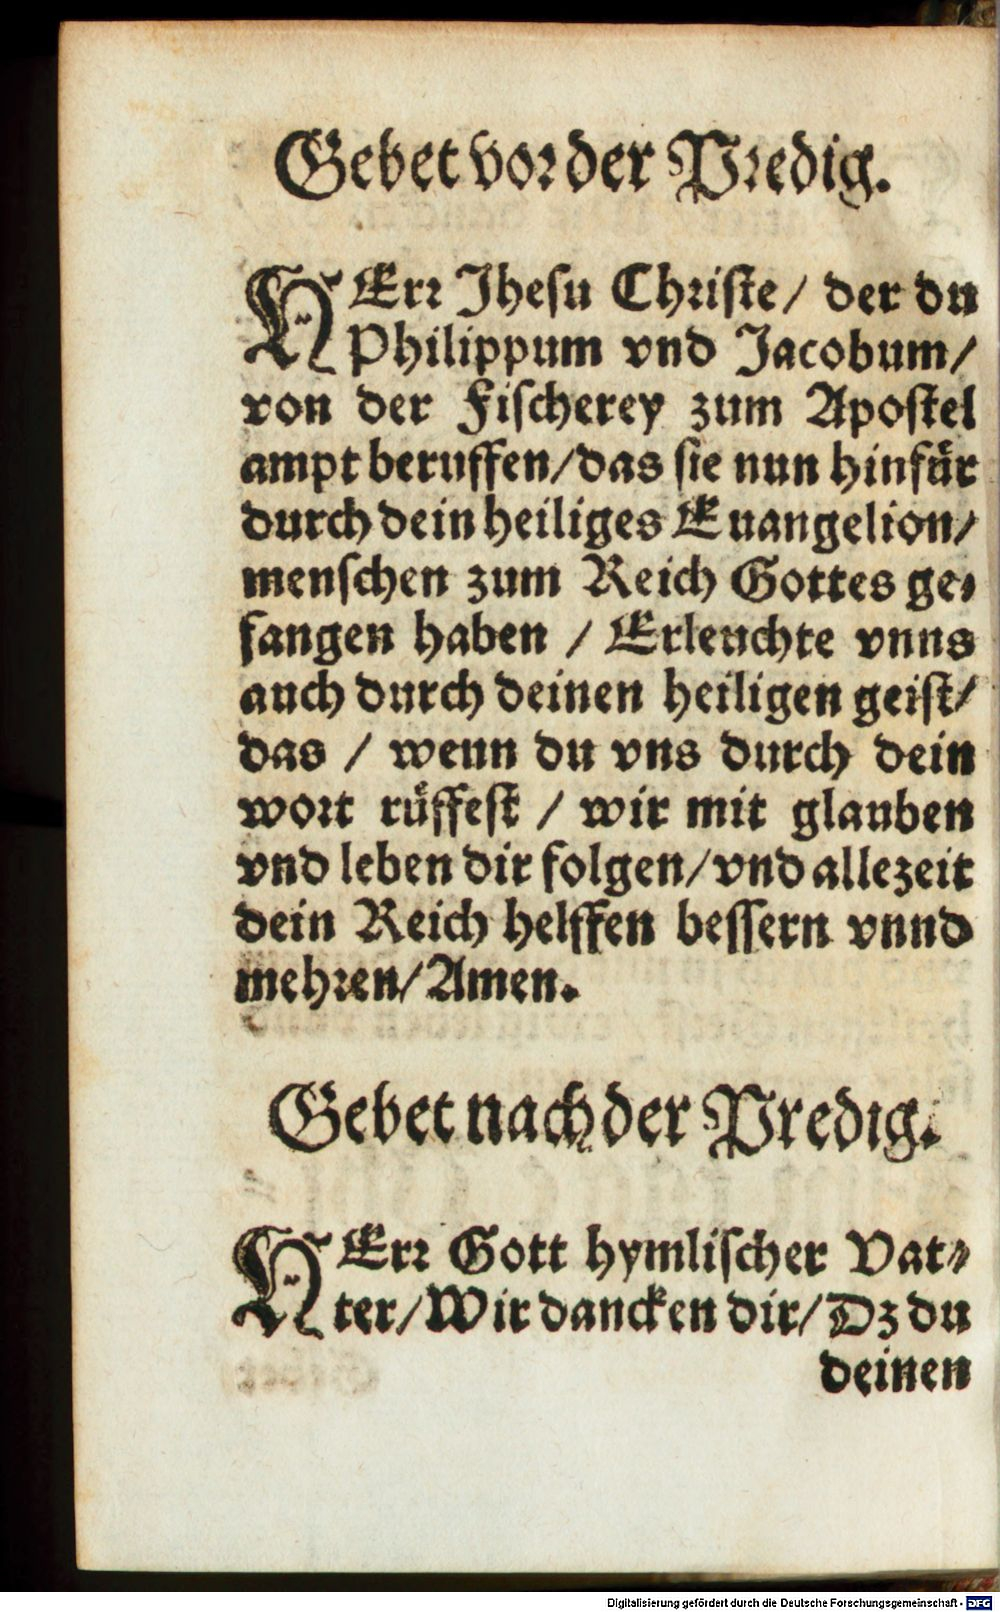 Gebet vor der Predig.
HErr Jhesu Christe/ der du
Philippum vnd Jacobum/
von der Fischerey zum Apostel
ampt beruffen/das sie nun hinfür
durch dein heiliges Euangelion/
menschen zum Reich Gottes ge-
fangen haben / Erleuchte vnns
auch durch deinen heiligen geist/
das / wenn du vns durch dein
wort rüffest / wir mit glauben
vnd leben dir folgen/vnd allezeit
dein Reich helffen bessern vnnd
mehren/Amen.
Gebet nach der Predig.
HErr Gott hymlischer Vat-
ter/Wir dancken dir/Dz du
deinen
Digitalisierung gefördert durch die Deutsche Forschungsgemeinschaft - DFG